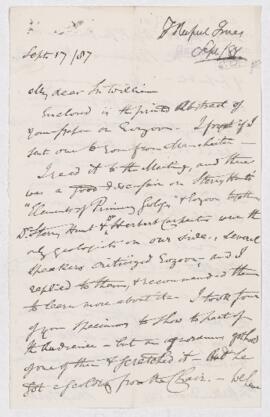 T Rupert Jones
Sept 17/87
My dear Sir William
Enclosed is the printed Abstract of
your paper on Eozoon. I
sent one to you from Manchester
I read it to the Meeting, and there
was a good discussion on Sterry Hunt's
"Elements of Primary Geology" & Eozoon together
Dr Sterry Hunt & Dr Herbert Carpenter were the
only geologists on our side. Several
speakers criticized Eozoon, and I
replied to them, & recommended them
to learn more about it. I took four
of your specimens to show to part of
the audience - but an ignoramus got hold
of one of them & scratched it. And he
got a scolding from the Chair. - We